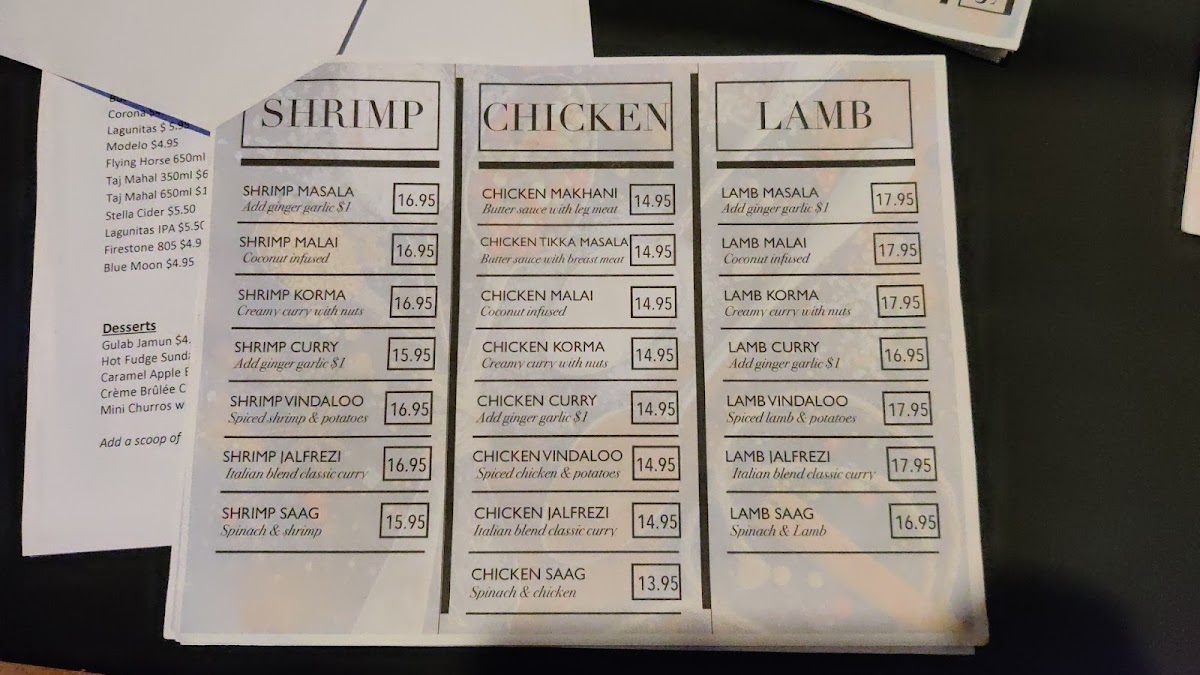 Corona
Lagunitas $ 5.95
Modelo $4.95
Flying Horse 650ml
Taj Mahal 350ml $6
Taj Mahal 650ml $1
Stella Cider $5.50
Lagunitas IPA $5.50
Firestone 805 $4.9
Blue Moon $4.95
Desserts
Gulab Jamun $4.
Hot Fudge
Caramel Apple
Crème Brûlée C
Mini Churros w
Add a scoop of
SHRIMP
SHRIMP MASALA 16.95
Add ginger garlic $1
SHRIMP MALAI 16.95
Coconut infused
SHRIMP KORMA 16.95
Creamy curry with nuts
SHRIMP CURRY 15.95
Add ginger garlic $1
SHRIMP VINDALOO 16.95
Spiced shrimp & potatoes
SHRIMP JALFREZI 16.95
Italian blend classic curry
SHRIMP SAAG 15.95
Spinach & shrimp
CHICKEN
CHICKEN MAKHANI 14.95
Butter sauce with leg meat
CHICKEN TIKKA MASALA 14.95
Butter sauce with breast meat
CHICKEN MALAI 14.95
Coconut infused
CHICKEN KORMA 14.95
Creamy curry with nuts
CHICKEN CURRY 14.95
Add ginger garlic $1
CHICKEN VINDALOO 14.95
Spiced chicken & potatoes
CHICKEN JALFREZI 14.95
Italian blend classic curry
CHICKEN SAAG 13.95
Spinach & chicken
LAMB
LAMB MASALA 17.95
Add ginger garlic $1
LAMB MALAI 17.95
Coconut infused
LAMB KORMA 17.95
Creamy curry with nuts
LAMB CURRY 16.95
Add ginger garlic $1
LAMB VINDALOO 17.95
Spiced lamb & potatoes
LAMB JALFREZI 17.95
Italian blend classic curry
LAMB SAAG 16.95
Spinach & Lamb